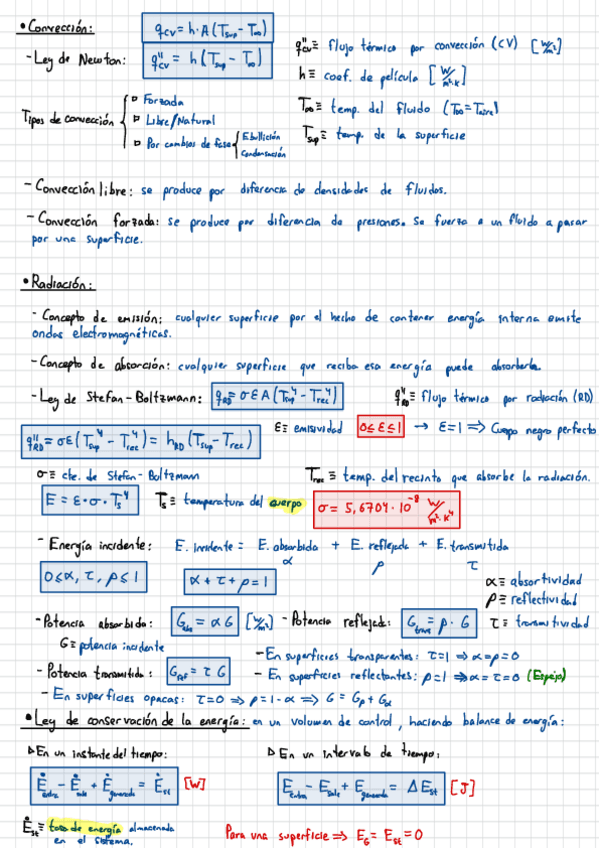 • Convección: q_cv = h·A (T_sup - T_∞)
- Ley de Newton: q''_cv = h (T_sup - T_∞)
q''_cv ≡ flujo térmico por convección (CV) [W/m²]
h ≡ coef. de película [W/m²·K]
T_∞ ≡ temp. del fluido (T_∞ = T_aire)
T_sup ≡ temp. de la superficie
Tipos de convección
▫ Forzada
▫ Libre/Natural
▫ Por cambios de fase { Ebullición
Condensación
- Convección libre: se produce por diferencia de densidades de fluidos.
- Convección forzada: se produce por diferencia de presiones. Se fuerza a un fluido a pasar
por una superficie.
• Radiación:
- Concepto de emisión: cualquier superficie por el hecho de contener energía interna emite
ondas electromagnéticas.
- Concepto de absorción: cualquier superficie que reciba esa energía puede absorberla.
- Ley de Stefan-Boltzmann: q_RD = σεA (T_sup⁴ - T_rec⁴)
q''_RD ≡ flujo térmico por radiación (RD)
q''_RD = σε (T_sup⁴ - T_rec⁴) = h_RD (T_sup - T_rec)
ε ≡ emisividad 0 ≤ ε ≤ 1 → ε = 1 ⇒ Cuerpo negro perfecto
σ ≡ cte. de Stefan-Boltzmann
T_rec ≡ temp. del recinto que absorbe la radiación.
E = ε·σ·T_s⁴ T_s ≡ temperatura del cuerpo σ = 5,6704·10⁻⁸ W/m²·K⁴
- Energía incidente: E. incidente = E. absorbida + E. reflejada + E. transmitida
α ρ τ
0 ≤ α, τ, ρ ≤ 1 α + τ + ρ = 1
α ≡ absortividad
ρ ≡ reflectividad
τ ≡ transmitividad
- Potencia absorbida: G_abs = α G [W/m²] - Potencia reflejada: G_trans = ρ · G
G ≡ potencia incidente
- Potencia transmitida: G_ref = τ G
- En superficies transparentes: τ = 1 ⇒ α = ρ = 0
- En superficies reflectantes: ρ = 1 ⇒ α = τ = 0 (Espejo)
- En superficies opacas: τ = 0 ⇒ ρ = 1 - α ⇒ G = G_ρ + G_α
• Ley de conservación de la energía: en un volumen de control, haciendo balance de energía:
▷ En un instante del tiempo:
Ė_entra - Ė_sale + Ė_generada = Ė_st [W]
▷ En un intervalo de tiempo:
E_entra - E_sale + E_generada = ΔE_st [J]
Ė_st ≡ tasa de energía almacenada
en el sistema.
Para una superficie ⇒ E_G = E_st = 0